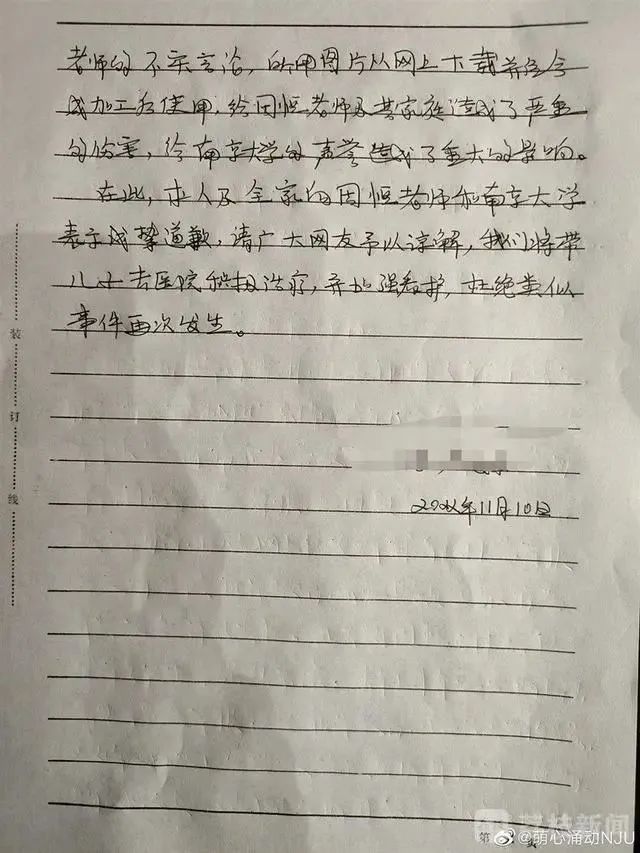 老师的不实言论，所用图片从网上下载并经合
成加工后使用，给周恒老师及其家庭造成了严重
的伤害，给南京大学的声誉造成了重大的影响。
在此，本人及全家向周恒老师和南京大学
表示诚挚道歉，请广大网友予以谅解，我们将带
儿子去医院积极治疗，并加强看护，杜绝类似
事件再次发生。
年11月10日
装
订
线
第
页
@萌心涌动NJU
荔枝新闻